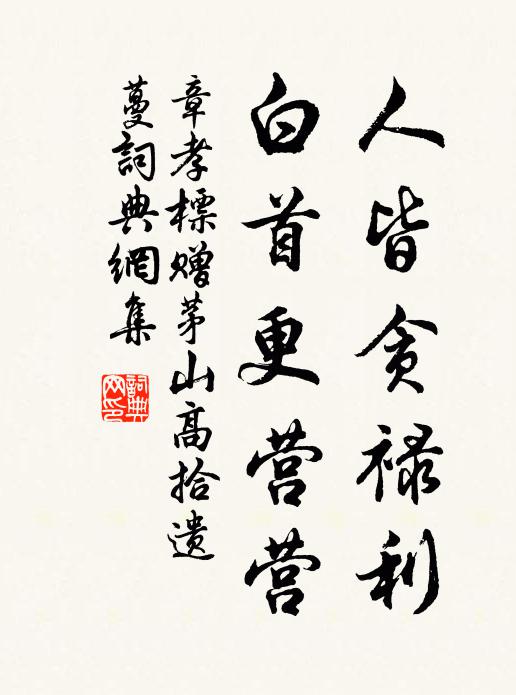 人皆贪禄利
白首更营营
章孝標赠茅山高拾遗
蔓詞典網集
詞典网印